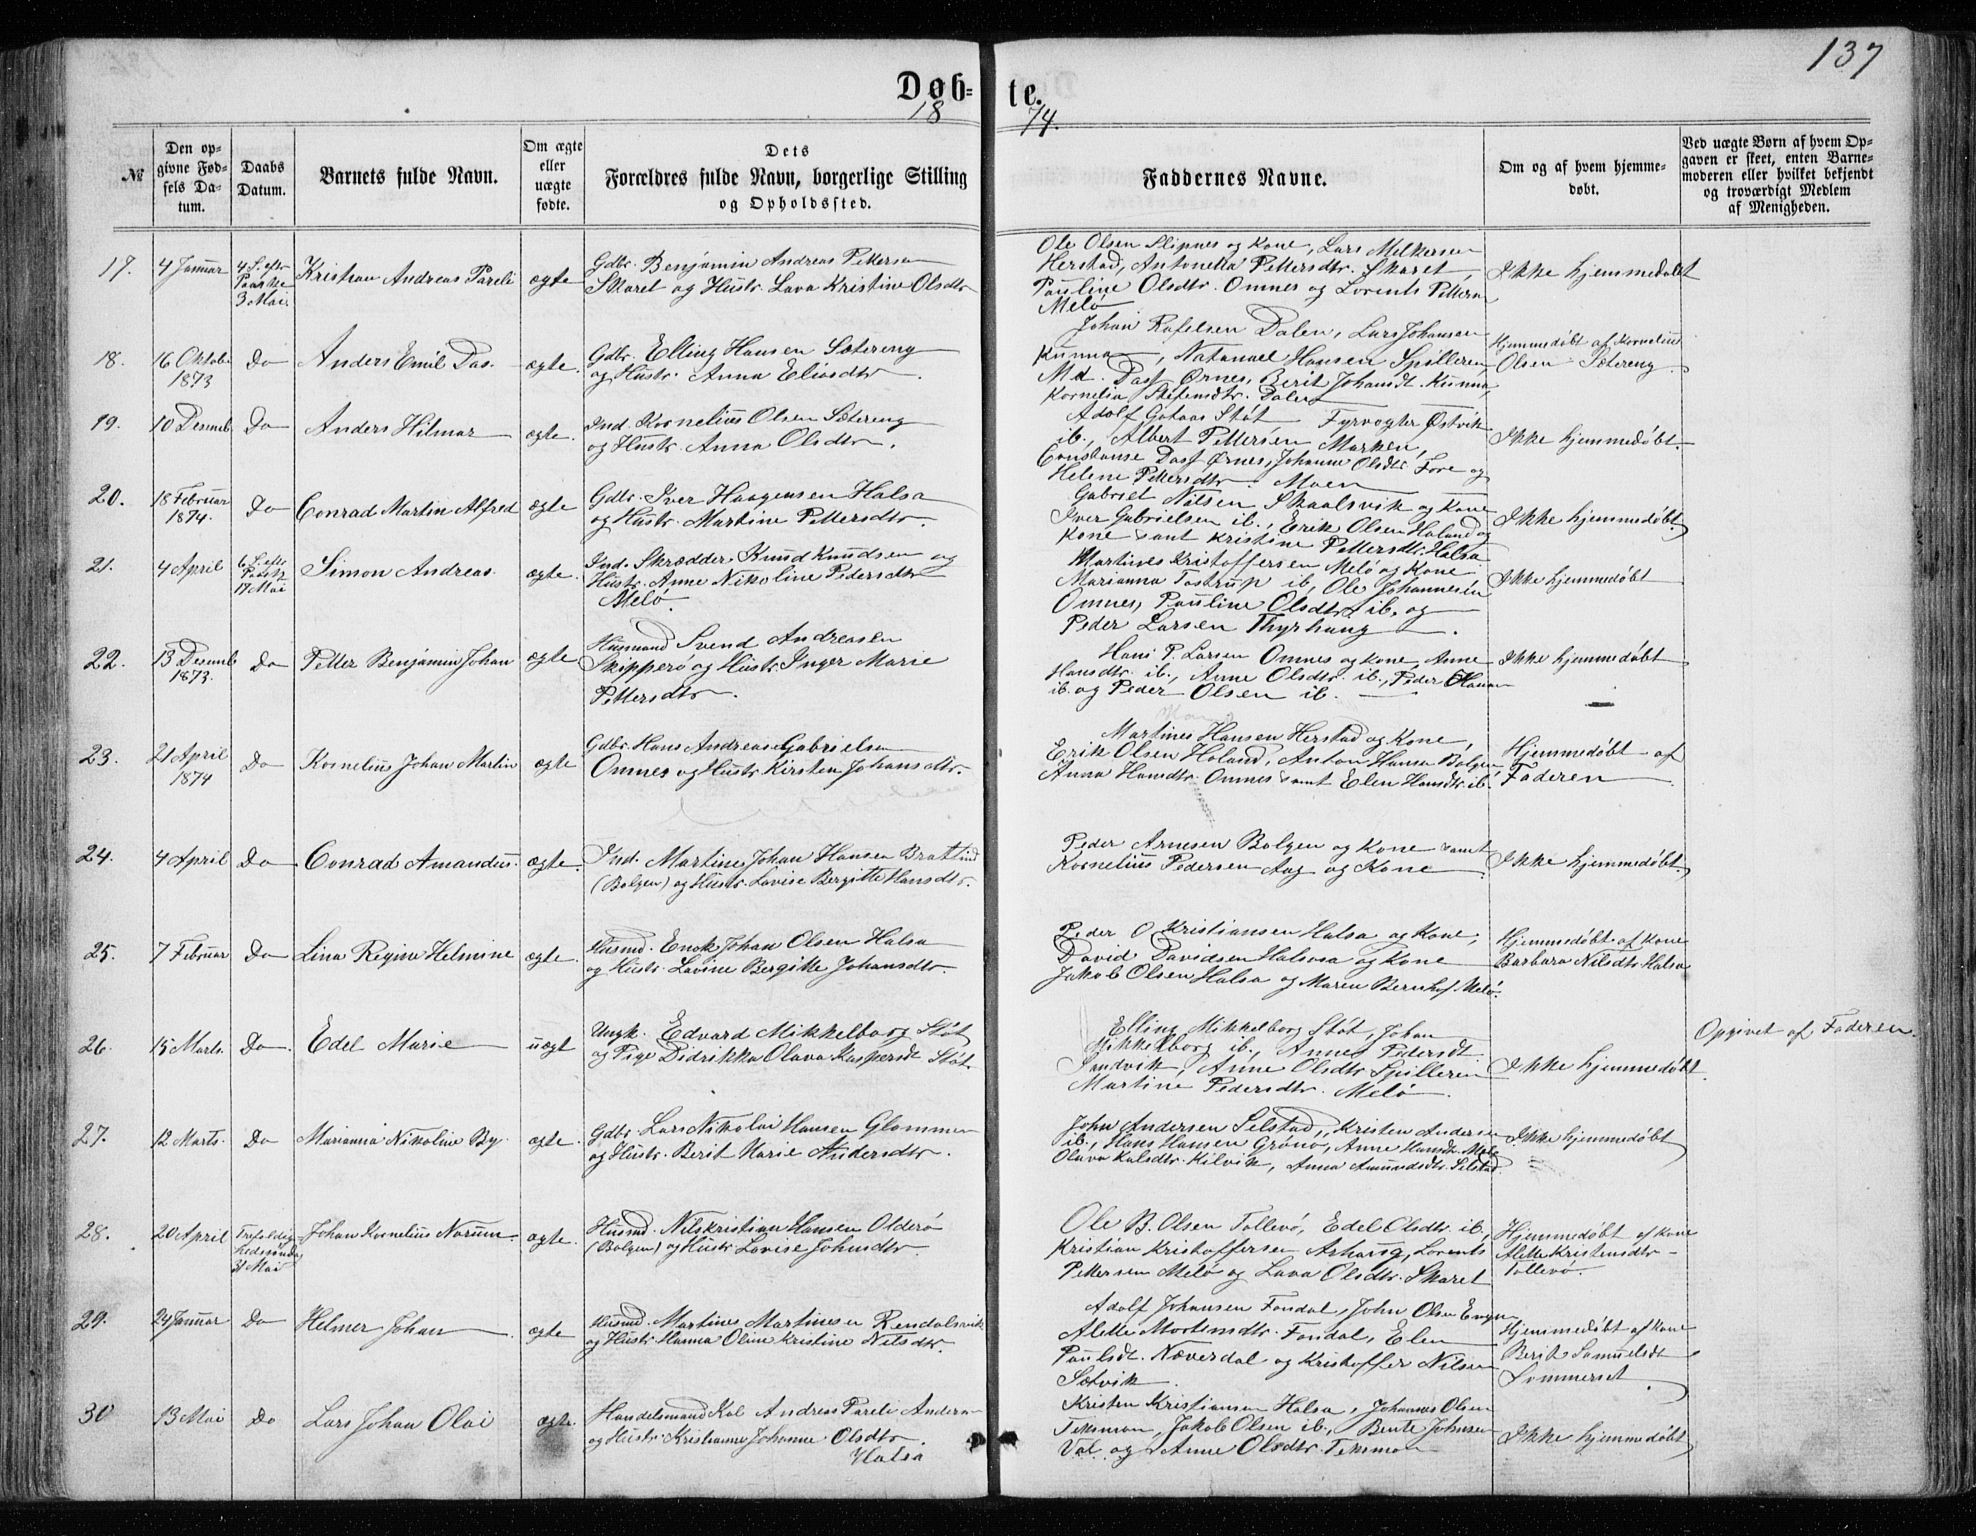 137
Døb-
te.
18
74.
№
Den op-
givne Fød-
sels Da-
tum.
Daabs
Datum.
Barnets fulde Navn.
Om ægte
eller
uægte
fødte.
Dets
Forældres fulde Navn, borgerlige Stilling
og Opholdssted.
Faddernes Navne.
Om og af hvem hjemme-
døbt.
Ved uægte Børn af hvem Op-
gaven er skeet, enten Barne-
moderen eller hvilket bekjendt
og troværdigt Medlem
af Menigheden.
17.
4 Januar
4 S. eftr
Paaske
3 Mai.
Kristian Andreas Pareli
ægte
Gdbr. Benjamin Andreas Pettersen
Skaret og Hustr. Lava Kristine Olsdtr
Ole Olsen Slipnes og Kone, Lars Melkersen
Herstad, Antonetta Pettersdtr. Skaret,
Pauline Olsdtr. Omnes og Lorents Pettersn
Melø
Ikke hjemmedøbt
18.
16 Oktobr
1873
Do
Anders Emil Das.
ægte.
Gdbr. Elling Hansen Sætereng
og Hustr. Anna Eliasdtr.
Johan Rafelsen Dalen, Lars Johansen
Kunna, Natanael Hansen Spilleren
Md. Dass Ørnes, Berit Johansdt. Kunna,
Kornelia Stefensdtr. Dalen
Hjemmedøbt af Kornelius
Olsen Sætereng.
19.
10 Desemb
Do
Anders Hilmar
ægte.
Ind. Kornelius Olsen Sætereng
og Hustr. Anna Olsdtr.
Adolf Gotaas Støt Fyrvogter Østvik
ib., Albert Pettersen Marken,
Constanse Dass Ørnes, Johanne Olsdtr. Fore og
Helene Pettersdtr. Moen
Ikke hjemmedøbt.
20.
18 Februar
1874.
Do
Conrad Martin Alfred
ægte
Gdbr. Iver Haagensen Halsa
og Hustr. Martine Pettersdtr.
Gabriel Nilsen Skaalsvik og Kone
Iver Gabrielsen ib., Erik Olsen Holand og
Kone samt Kristine Pettersdtr. Halsa
Ikke hjemmedøbt.
21.
4 April
6 S. eftr
Paaske
17 Mai
Simon Andreas
ægte.
Ind. Skrædder Knud Knudsen og
Hustr. Anne Nikoline Pedersdtr
Melø.
Martines Kristoffersen Melø og Kone
Marianna Tostrup ib, Ole Johannesen
Omnes, Pauline Olsdtr. ib. og
Peder Larsen Thyrhaug.
Ikke hjemmedøbt
22.
13 Desemb
1873.
Do
Petter Benjamin Johan
ægte
Husmand Svend Andreasen
Skipperø og Hustr. Inger Marie
Pettersdtr.
Hans P Larsen Omnes og Kone, Anne
Hansdtr. ib., Anne Olsdtr. ib., Peder
ib. og Peder Olsen ib.
Ikke hjemmedøbt
23.
21 April
1874
Do
Kornelius Johan Martin
ægte
Gdbr. Hans Andreas Gabrielsen
Omnes og Hustr. Kirsten Johansdtr.
Martines Hansen Herstad og Kone,
Erik Olsen Holand, Anton Hansen Bolgen,
Anna Hansdtr. Omnes samt Elen Hansdtr. ib.
Hjemmedøbt af
Faderen
24.
4 April
Do
Conrad Amandus.
ægte.
Ind. Martines Johan Hansen Bratlind
(Bolgen) og Hustr. Lovise Bergitte Hansdtr.
Peder Arnesen Bolgen og Kone samt
Kornelius Pedersen Aag og Kone
Ikke hjemmedøbt.
25.
7 Februar
Do
Lina Regine Helmine
ægte.
Husmd. Enok Johan Olsen Halsa
og Hustr. Lovine Bergitte Johansdtr.
Peder O Kristiansen Halsa og Kone,
David Davidsen Halsosa og Kone
Jakob Olsen Halsa og Maren Bernhof. Melø.
Hjemmedøbt af Kone
Barbara Nilsdtr. Halsa
26.
15 Marts.
Do.
Edel Marie
uægt
Ungk. Edvard Mikkelborg Støt
og Pige Didrikka Olava Kaspersdt Støt.
Elling Mikkelborg Støt, Johan
Mikkelborg ib., Anne Pedersdt.
Sandvik, Anne Olsdtr. Spilleren
Martine Pedersdtr. Melø.
Ikke hjemmedøbt.
Opgivet af Faderen.
27.
12 Marts.
Do
Marianna Nikoline By.
ægte.
Gdbr. Lars Nikolai Hansen Glommen
og Hustr. Berit Marie Andersdtr.
John Andersen Selstad, Kristen Andersen
ib., Hans Hansen Grønø, Anne Hansdt. Melø
Olava Kalsdtr. Kilvik, Anna Amundsdtr. Selstad.
Ikke hjemmedøbt
28.
20 April
Trefoldig
hedssøndag
31 Mai
Johan Kornelius Norum.
ægte.
Husmd. Nils Kristian Hansen Olderø
(Bolgen) og Hustr. Lovise Johnsdtr.
Ole B. Olsen Tollevø, Edel Olsdtr. ib.,
Kristian Kristoffersen Ashaug, Lorents
Pettersen Melø og Lava Olsdtr. Skaret
Hjemmedøbt af Kone
Alette Kristensdtr
Tollevø.
29.
24 Januar
Do
Helmer Johan
ægte
Husmd. Martines Martinesen Rendalsvik
og Hustr. Hanna Oline Kristine Nilsdtr.
Adolf Johansen Fondal, John Olsen Engen
Alette Mortensdtr. Fondal, Elen
Paulsdt. Næverdal og Kristoffer Nilsen
Sætvik.
Hjemmedøbt af Kone
Berit Samuelsdt
Sommerset
30
13 Mai
Do
Lars Johan Olai
ægte.
Handelsmand Kal Andreas Pareli Andersen
og Hustr. Kristianna Johanne Olsdtr.
Halsa
Kristen Kristiansen Halsa, Johannes Olsen
Teksmon, Jakob Olsen ib., Bente Johnsen
Val og Anne Olsdtr. Teksmon
Ikke hjemmedøbt